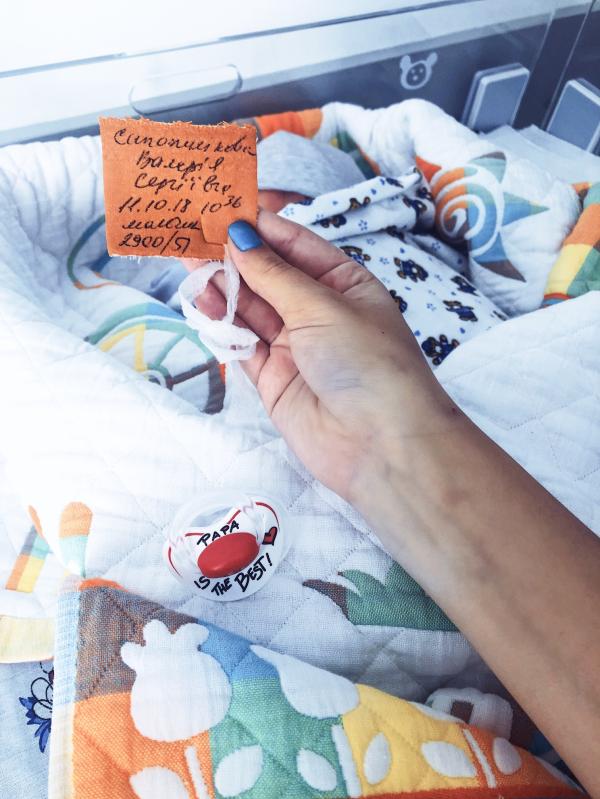 Валерія
Сергіївна
11.10.18 10 36
2900/51
PAPA
IS THE BEST!